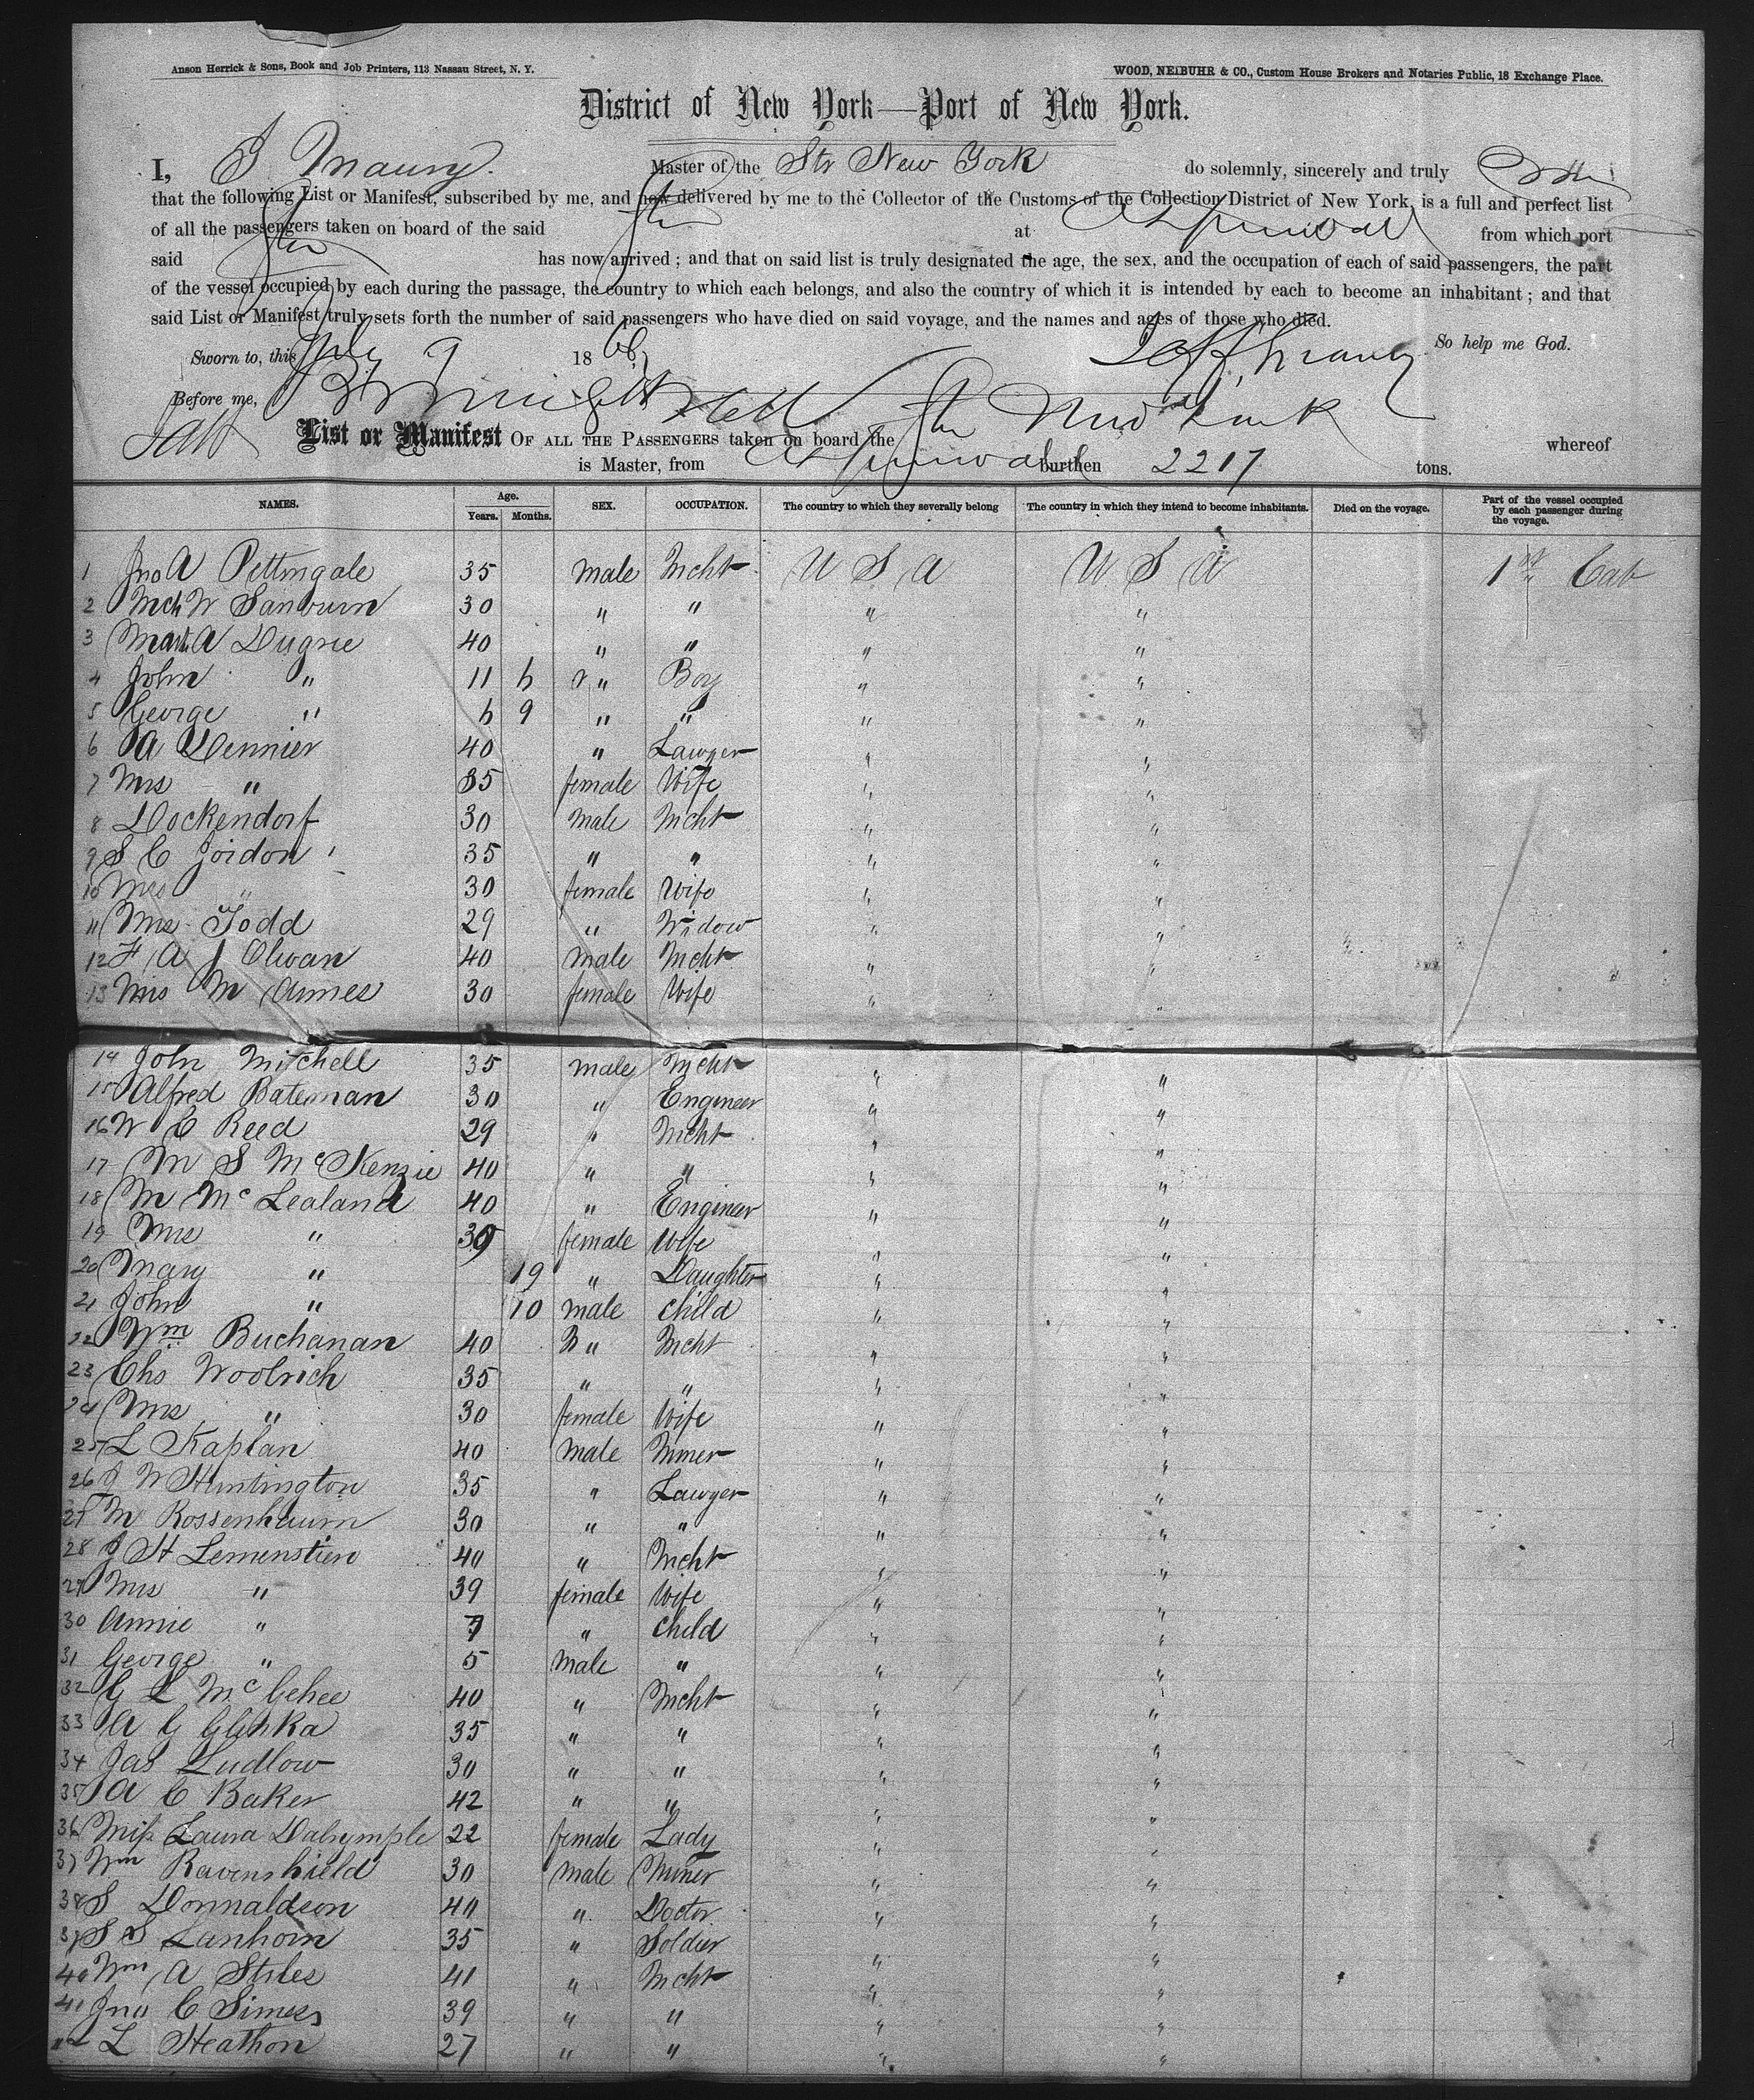 Anson Herrick & Sons, Book and Job Printers, 113 Nassau Street, N. Y. WOOD, NEIBUHR & CO., Custom House Brokers and Notaries Public, 18 Exchange Place.
District of New York—Port of New York.
I, J Maury. Master of the Str New York do solemnly, sincerely and truly
that the following List or Manifest, subscribed by me, and now delivered by me to the Collector of the Customs of the Collection District of New York, is a full and perfect list
of all the passengers taken on board of the said Str at Aspinwall from which port
said Str has now arrived ; and that on said list is truly designated the age, the sex, and the occupation of each of said passengers, the part
of the vessel occupied by each during the passage, the country to which each belongs, and also the country of which it is intended by each to become an inhabitant ; and that
said List or Manifest truly sets forth the number of said passengers who have died on said voyage, and the names and ages of those who died.
So help me God.
Sworn to, this July 9 18 Jeff Maury
Before me,
List or Manifest OF ALL THE PASSENGERS taken on board the Str New York whereof
is Master, from Aspinwall burthen 2217 tons.
NAMES. Age. Years. Months. SEX. OCCUPATION. The country to which they severally belong The country in which they intend to become inhabitants. Died on the voyage. Part of the vessel occupied by each passenger during the voyage.
1 Jno A Pettingale 35 male Mcht U S A U S A 1st Cab
2 W Sanburn 30 " " " "
3 A Dugrie 40 " " " "
4 John " 11 6 " Boy " "
5 George " 6 9 " " " "
6 A Dennier 40 " Lawyer " "
7 Mrs " 35 female Wife " "
8 Dockendorf 30 male Mcht " "
9 S C Jordon 35 " " " "
10 Mrs " 30 female Wife " "
11 Mrs Todd 29 " Widow " "
12 F A J Olwan 40 male Mcht " "
13 Mrs M Annes 30 female Wife " "
14 John Mitchell 35 male Mcht " "
15 Alfred Bateman 30 " Engineer " "
16 W C Reed 29 " Mcht " "
17 M S McKenzie 40 " " " "
18 M McLealand 40 " Engineer " "
19 Mrs " 39 female Wife " "
20 Mary " 19 " Daughter " "
21 John " 10 male child " "
22 Wm Buchanan 40 " Mcht " "
23 Chs Woolrich 35 " " " "
24 Mrs " 30 female Wife " "
25 L Kaplan 40 male Miner " "
26 J W Huntington 35 " Lawyer " "
27 M Rossenbaum 30 " " " "
28 J H Lemenstien 40 " Mcht " "
29 Mrs " 39 female Wife " "
30 Annie " 7 " Child " "
31 George " 5 male " " "
32 G L McGehee 40 " Mcht " "
33 A G Glinka 35 " " " "
34 Jas Ludlow 30 " " " "
35 A C Baker 42 " " " "
36 Miss Laura Dalrymple 22 female Lady " "
37 Wm Ravenshield 30 male Miner " "
38 S Donnaldson 40 " Doctor " "
39 S S Lanhorn 35 " Soldier " "
40 Wm A Stiles 41 " Mcht " "
41 Jno C Simess 39 " " " "
42 L Heathon 27 " " " "